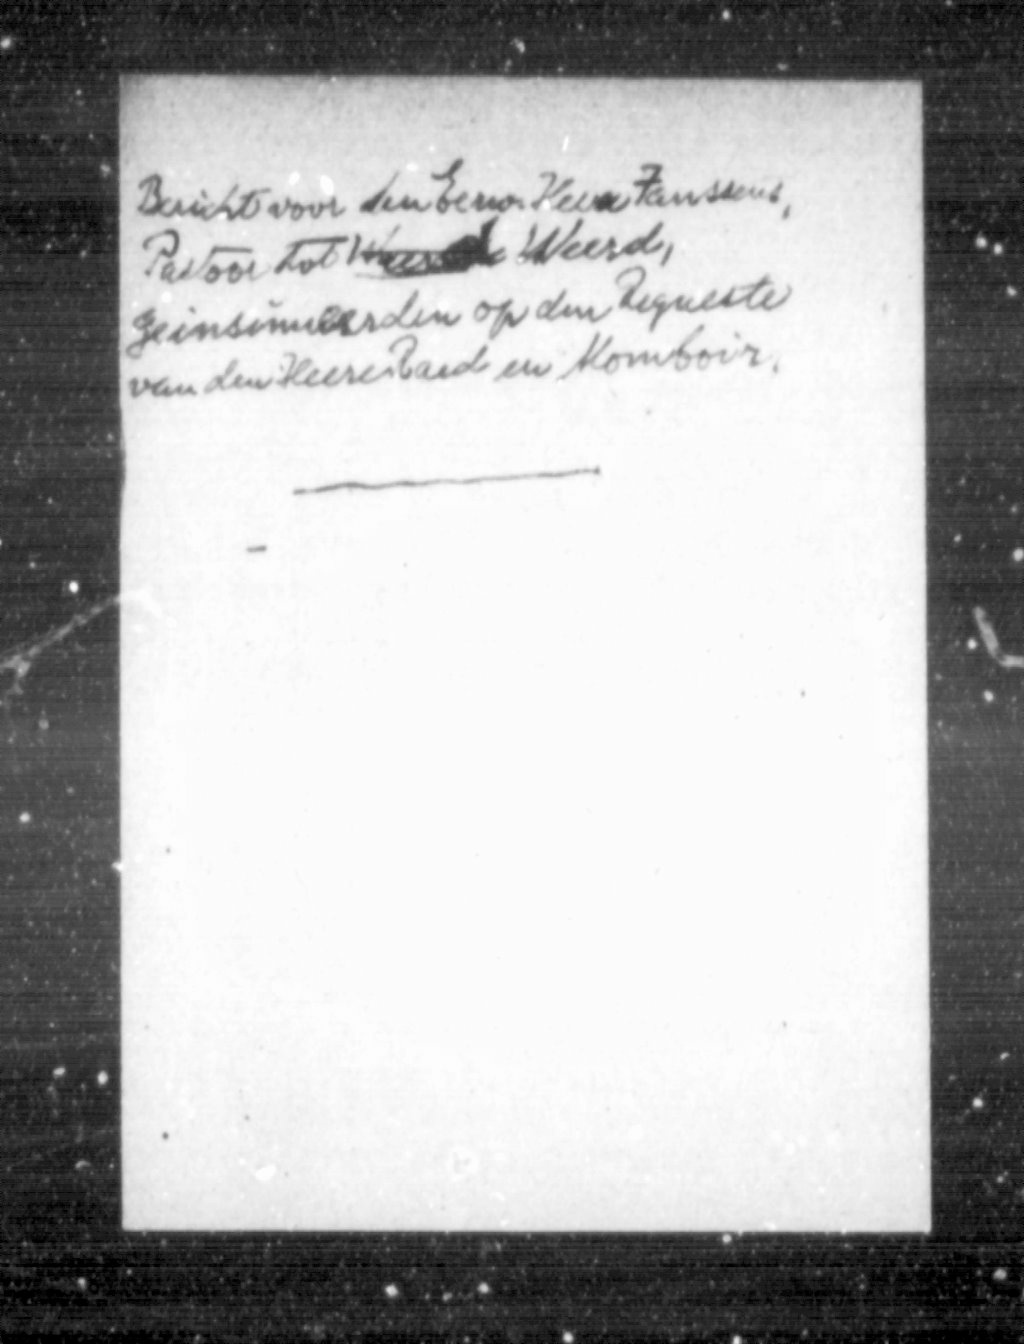 Bericht voor den Eerw. Heere Janssens,
Pastoor tot Weerd,
geinsinueerden op den Requeste
van den Heere Raed en Momboir.